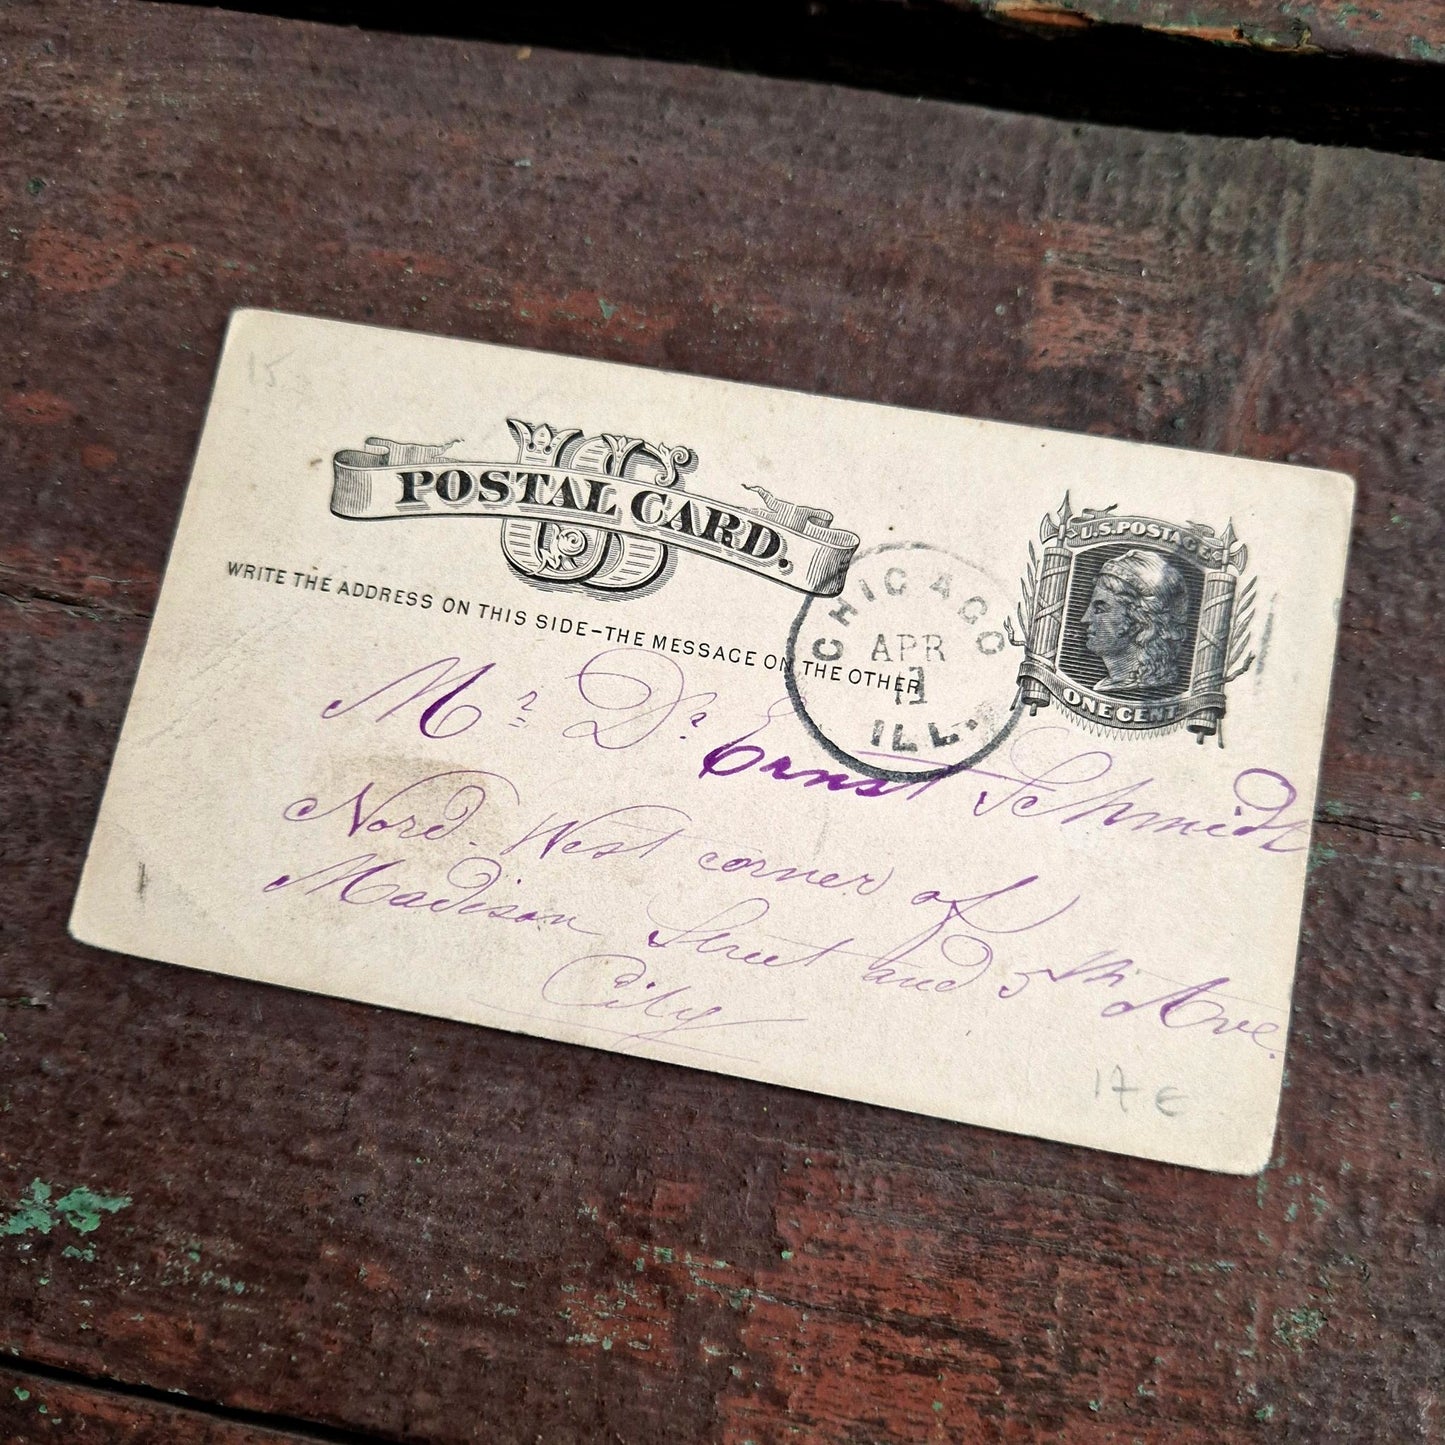 15
US
POSTAL CARD.
WRITE THE ADDRESS ON THIS SIDE–THE MESSAGE ON THE OTHER
CHICAGO
APR
11
ILL.
U.S. POSTAGE
ONE CENT
Mr Dr Ernst Schmidt
Nord. West corner of
Madison Street and 5th Ave.
City
17 €